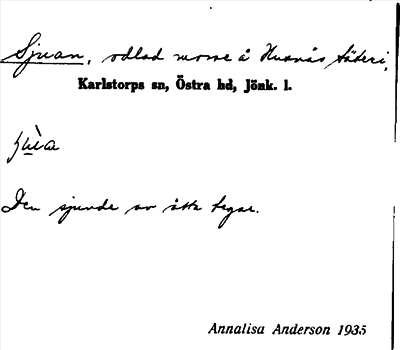 Sjuan, odlad mosse å Husnäs säteri,
Karlstorps sn, Östra hd, Jönk. l.
Den sjunde av åtta tegar.
Annalisa Anderson 1935